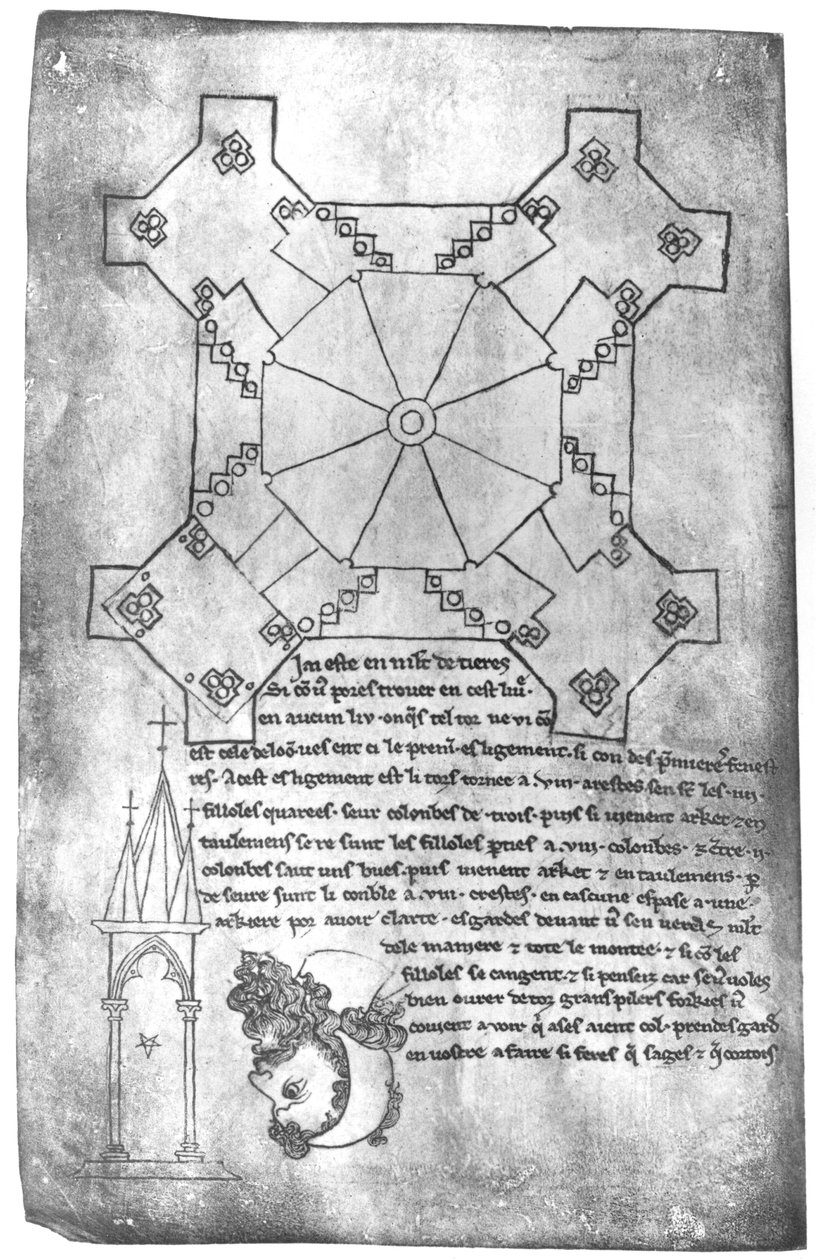 Jai este en mlt de tieres
Si cō uˢ pores trouer en cest liuͤ·
en aucun liu · onq̄s tel tor ne vi cō
est cele de loō · ues ent ci le prem̄· esligement · si con des p̄mieres fenest
res· A cest esligement est li tors tornee a · viii · arestes sen st̄ les · iiii ·
filloles quarees · seur colonbes de · trois · puis si uienent arket ⁊ en
taulemens se re sunt les filloles ꝑties a · viii · colonbes · ⁊ ētre · ii ·
colonbes saut uns bues · puis uienent arket ⁊ en taulemens · ꝑ
de seure sunt li conble a · viii · crestes · en cascune espase a · une ·
arkiere por auoir clarte · esgardes deuant uˢ sen ueres mlt
dele maniere ⁊ tote le montee · ⁊ si cō les
filloles se cangent · ⁊ si penseiz car se uˢ uoles
bien ourer de toz grans pilers forkies uˢ
couient auoir q̄ ases aient col · prendes gard
en uostre afaire si feres q̄ sages ⁊ q̄ cortois